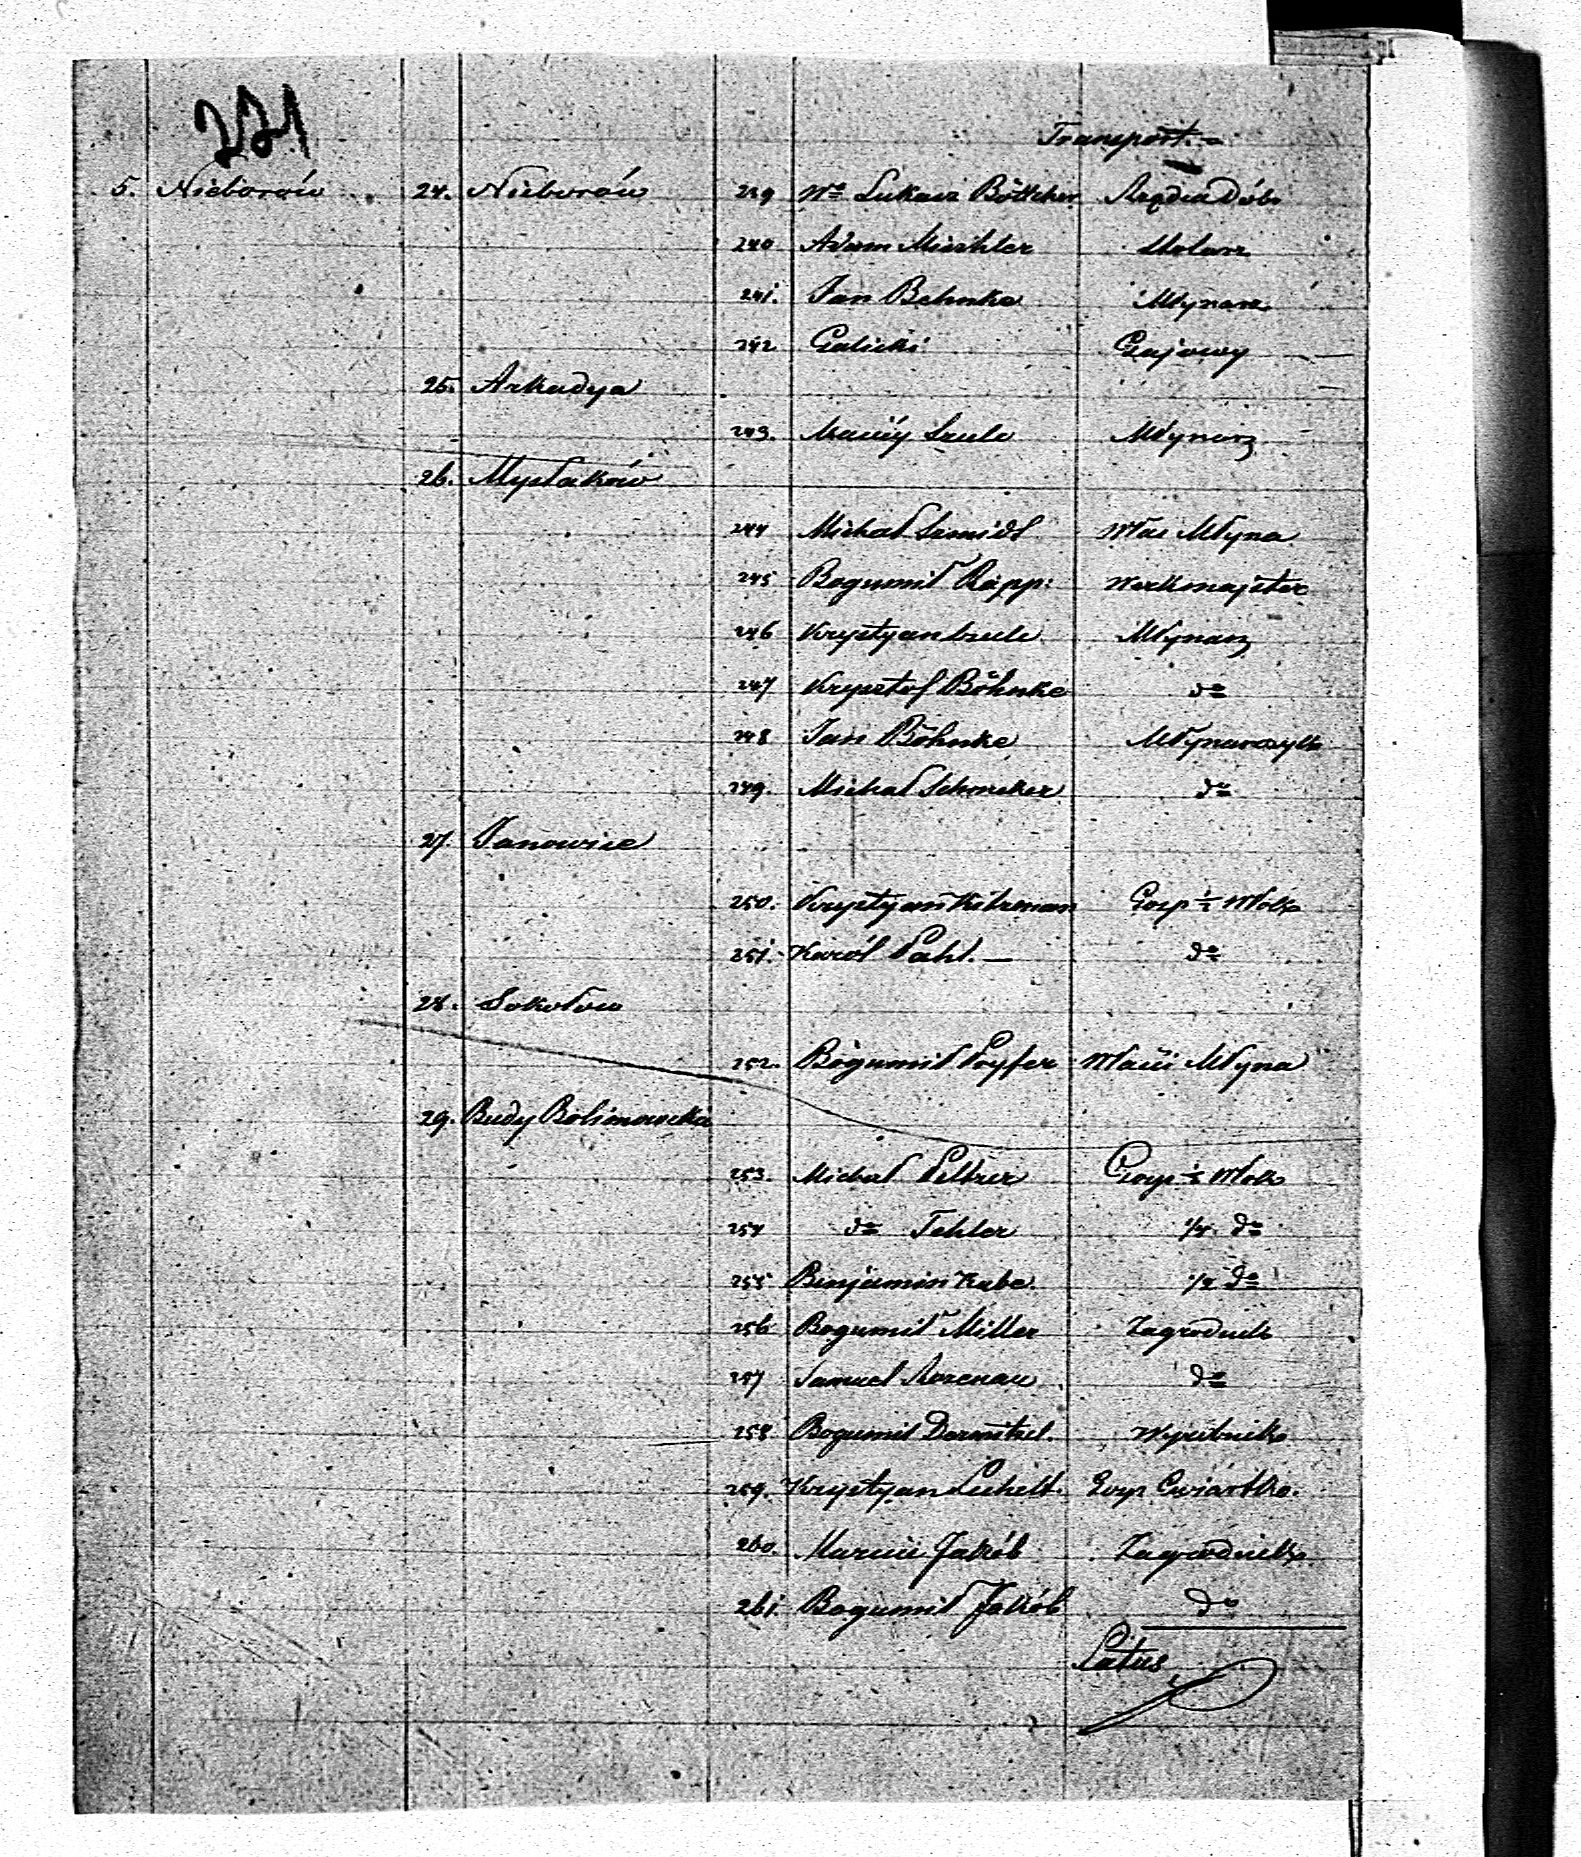 221
Transport.
5. Nieborów 24. Nieborów 239 Wo Łukasz Böttcher Rządca Dóbr
240 Adam Mischler Molarz
241. Jan Behnke Młynarz
242 Galicki Gajowy
25. Arkadya
243. Maciéy Szulc Młynarz
26. Mysłaków
244 Michał Szmidt Włas Młyna
245 Bogumił Rapp: Werkmajster
246 Krystyan Szulc Młynarz
247 Krysztof Böhnke do
248 Jan Böhnke Młynarczyk
249. Michał Schmeker do
27. Janowice
250. Krystyan Kitzman Gosp ½ Włok
251. Karól Pahl. do
28. Sokołow
252. Bogumił Poyfer Właści Młyna
29. Budy Bolimowskie
253. Michał Peltzer Gosp ½ Włok
254 do Fehler 1/4. do
255 Benjamin Kabe. 1/2 do
256 Bogumił Miller Zagrodnik
257 Samuel Rozenau do
258 Bogumił Wyrobnik
259. Krystyan Lichelt. Gosp Cwiartko.
260. Marcin Jakób Zagrodnik
261. Bogumił Jakób do
Latus